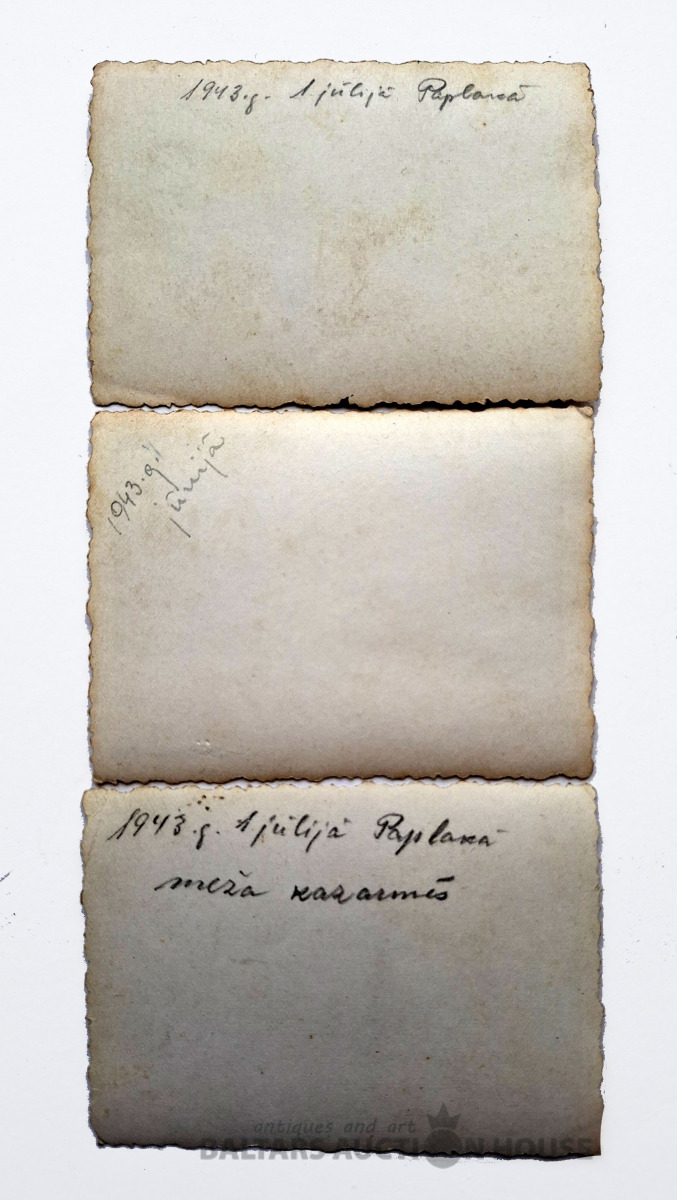 1943.g. 1 jūlijā Paplakā
1943.g.
jūnijā
1943.g. 1 jūlijā Paplakā
meža kazarmēs
antiques and art
BALTARS AUCTION HOUSE